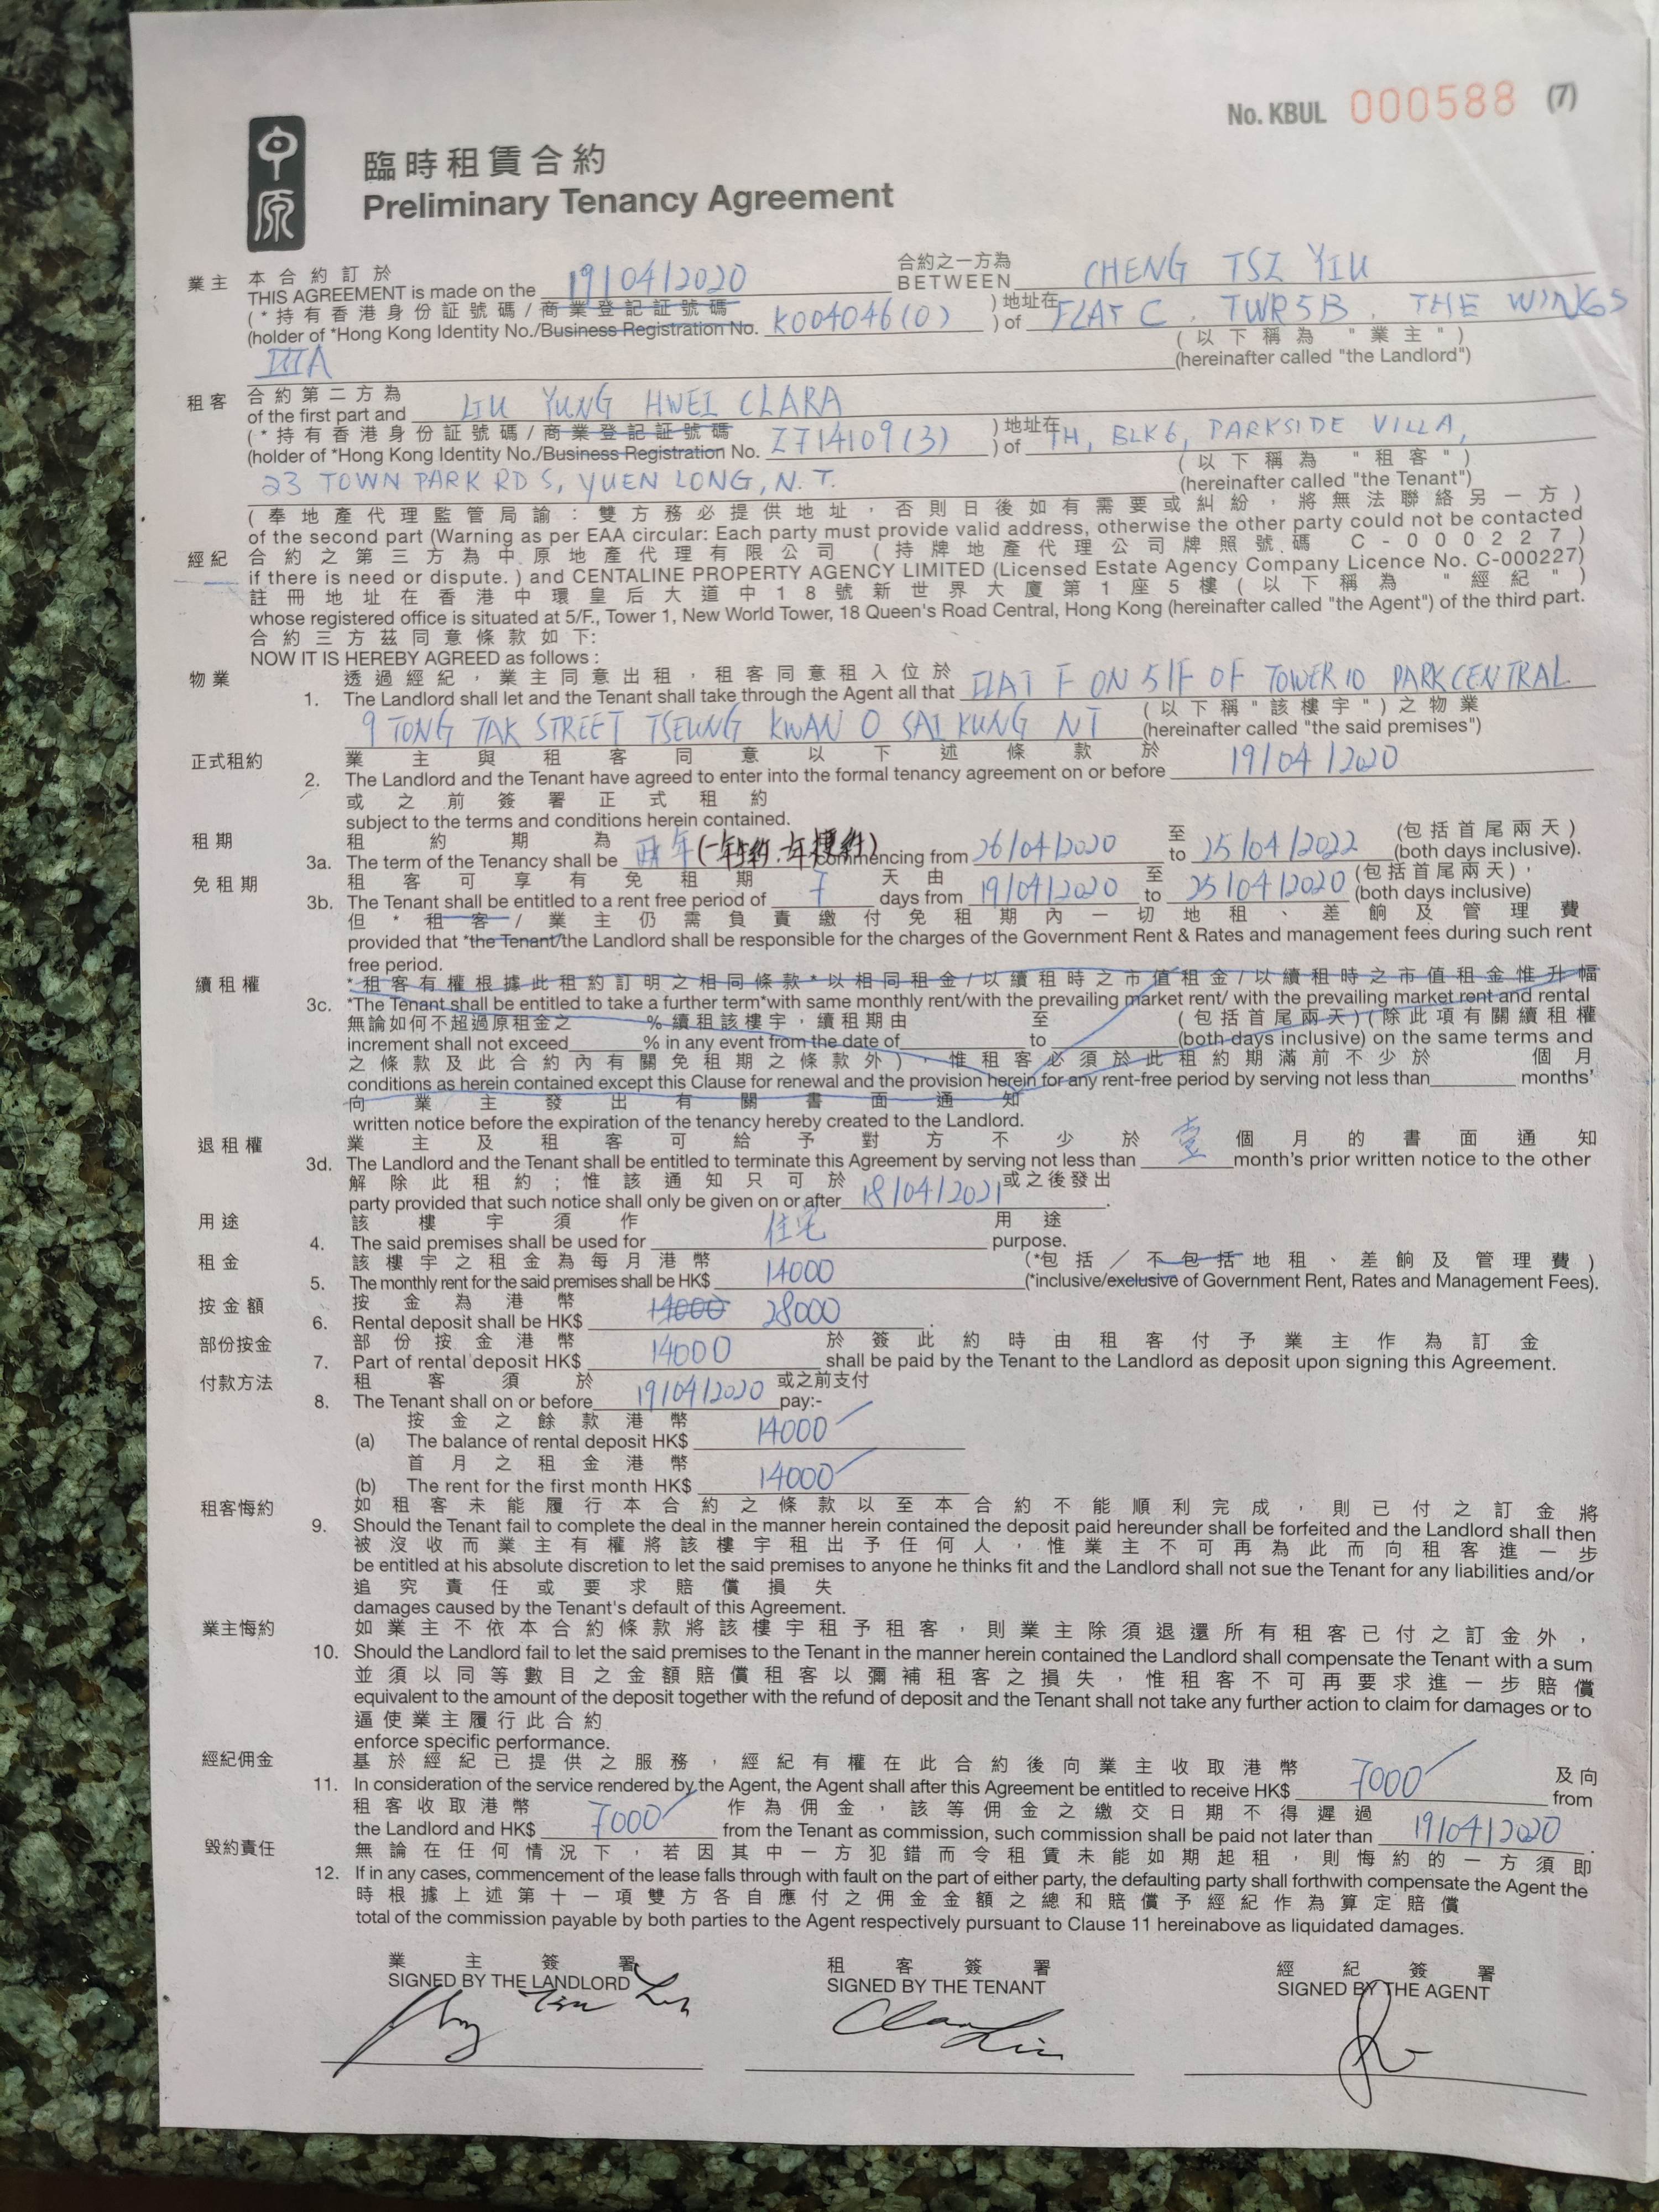 No. KBUL 000588 (7)
中原
臨時租賃合約
Preliminary Tenancy Agreement
業主 本合約訂於 合約之一方為
THIS AGREEMENT is made on the 19/04/2020 BETWEEN CHENG TSZ YIU
(*持有香港身份証號碼/商業登記証號碼 )地址在
(holder of *Hong Kong Identity No./Business Registration No. K004046(0) ) of FLAT C, TWR5B, THE WINGS
IIIA (以下稱為"業主")
(hereinafter called "the Landlord")
租客 合約第二方為
of the first part and LIU YUNG HWEI CLARA
(*持有香港身份証號碼/商業登記証號碼 )地址在
(holder of *Hong Kong Identity No./Business Registration No. Z714109(3) ) of TH, BLK6, PARKSIDE VILLA,
(以下稱為"租客")
23 TOWN PARK RD S, YUEN LONG, N.T. (hereinafter called "the Tenant")
(奉地產代理監管局諭:雙方務必提供地址,否則日後如有需要或糾紛,將無法聯絡另一方)
of the second part (Warning as per EAA circular: Each party must provide valid address, otherwise the other party could not be contacted
經紀 合約之第三方為中原地產代理有限公司(持牌地產代理公司牌照號碼C-000227)
if there is need or dispute. ) and CENTALINE PROPERTY AGENCY LIMITED (Licensed Estate Agency Company Licence No. C-000227)
註冊地址在香港中環皇后大道中18號新世界大廈第1座5樓(以下稱為"經紀")
whose registered office is situated at 5/F., Tower 1, New World Tower, 18 Queen's Road Central, Hong Kong (hereinafter called "the Agent") of the third part.
合約三方茲同意條款如下:
NOW IT IS HEREBY AGREED as follows :
物業 透過經紀,業主同意出租,租客同意租入位於
1. The Landlord shall let and the Tenant shall take through the Agent all that FLAT F ON 51F OF TOWER 10 PARK CENTRAL
(以下稱"該樓宇")之物業
9 TONG TAK STREET TSEUNG KWAN O SAI KUNG NT (hereinafter called "the said premises")
正式租約 業主與租客同意以下述條款於
2. The Landlord and the Tenant have agreed to enter into the formal tenancy agreement on or before 19/04/2020
或之前簽署正式租約
subject to the terms and conditions herein contained.
租期 租約期為 至 (包括首尾兩天)
3a. The term of the Tenancy shall be 兩年 commencing from 26/04/2020 to 25/04/2022 (both days inclusive).
免租期 租客可享有免租期 天由 至 (包括首尾兩天),
3b. The Tenant shall be entitled to a rent free period of 7 days from 19/04/2020 to 25/04/2020 (both days inclusive)
但*租客/業主仍需負責繳付免租期內一切地租、差餉及管理費
provided that *the Tenant/the Landlord shall be responsible for the charges of the Government Rent & Rates and management fees during such rent
free period.
續租權 *租客有權根據此租約訂明之相同條款*以相同租金/以續租時之市值租金/以續租時之市值租金惟升幅
3c. *The Tenant shall be entitled to take a further term*with same monthly rent/with the prevailing market rent/ with the prevailing market rent and rental
無論如何不超過原租金之 %續租該樓宇,續租期由 至 (包括首尾兩天)(除此項有關續租權
increment shall not exceed % in any event from the date of to (both days inclusive) on the same terms and
之條款及此合約內有關免租期之條款外),惟租客必須於此租約期滿前不少於 個月
conditions as herein contained except this Clause for renewal and the provision herein for any rent-free period by serving not less than months'
向業主發出有關書面通知
written notice before the expiration of the tenancy hereby created to the Landlord.
退租權 業主及租客可給予對方不少於 個月的書面通知
3d. The Landlord and the Tenant shall be entitled to terminate this Agreement by serving not less than 壹 month's prior written notice to the other
解除此租約;惟該通知只可於 或之後發出
party provided that such notice shall only be given on or after 18/04/2021.
用途 該樓宇須作 用途
4. The said premises shall be used for 住宅 purpose.
租金 該樓宇之租金為每月港幣 (*包括/不包括地租、差餉及管理費)
5. The monthly rent for the said premises shall be HK$ 14000 (*inclusive/exclusive of Government Rent, Rates and Management Fees).
按金額 按金為港幣
6. Rental deposit shall be HK$ 14000 28000.
部份按金 部份按金港幣 於簽此約時由租客付予業主作為訂金
7. Part of rental deposit HK$ 14000 shall be paid by the Tenant to the Landlord as deposit upon signing this Agreement.
付款方法 租客須於 或之前支付
8. The Tenant shall on or before 19/04/2020 pay:-
按金之餘款港幣
(a) The balance of rental deposit HK$ 14000
首月之租金港幣
(b) The rent for the first month HK$ 14000
租客悔約 如租客未能履行本合約之條款以至本合約不能順利完成,則已付之訂金將
9. Should the Tenant fail to complete the deal in the manner herein contained the deposit paid hereunder shall be forfeited and the Landlord shall then
被沒收而業主有權將該樓宇租出予任何人,惟業主不可再為此而向租客進一步
be entitled at his absolute discretion to let the said premises to anyone he thinks fit and the Landlord shall not sue the Tenant for any liabilities and/or
追究責任或要求賠償損失
damages caused by the Tenant's default of this Agreement.
業主悔約 如業主不依本合約條款將該樓宇租予租客,則業主除須退還所有租客已付之訂金外,
10. Should the Landlord fail to let the said premises to the Tenant in the manner herein contained the Landlord shall compensate the Tenant with a sum
並須以同等數目之金額賠償租客以彌補租客之損失,惟租客不可再要求進一步賠償
equivalent to the amount of the deposit together with the refund of deposit and the Tenant shall not take any further action to claim for damages or to
逼使業主履行此合約
enforce specific performance.
經紀佣金 基於經紀已提供之服務,經紀有權在此合約後向業主收取港幣 及向
11. In consideration of the service rendered by the Agent, the Agent shall after this Agreement be entitled to receive HK$ 7000 from
租客收取港幣 作為佣金,該等佣金之繳交日期不得遲過
the Landlord and HK$ 7000 from the Tenant as commission, such commission shall be paid not later than 19/04/2020.
毀約責任 無論在任何情況下,若因其中一方犯錯而令租賃未能如期起租,則悔約的一方須即
12. If in any cases, commencement of the lease falls through with fault on the part of either party, the defaulting party shall forthwith compensate the Agent the
時根據上述第十一項雙方各自應付之佣金金額之總和賠償予經紀作為算定賠償
total of the commission payable by both parties to the Agent respectively pursuant to Clause 11 hereinabove as liquidated damages.
業主簽署 租客簽署 經紀簽署
SIGNED BY THE LANDLORD SIGNED BY THE TENANT SIGNED BY THE AGENT